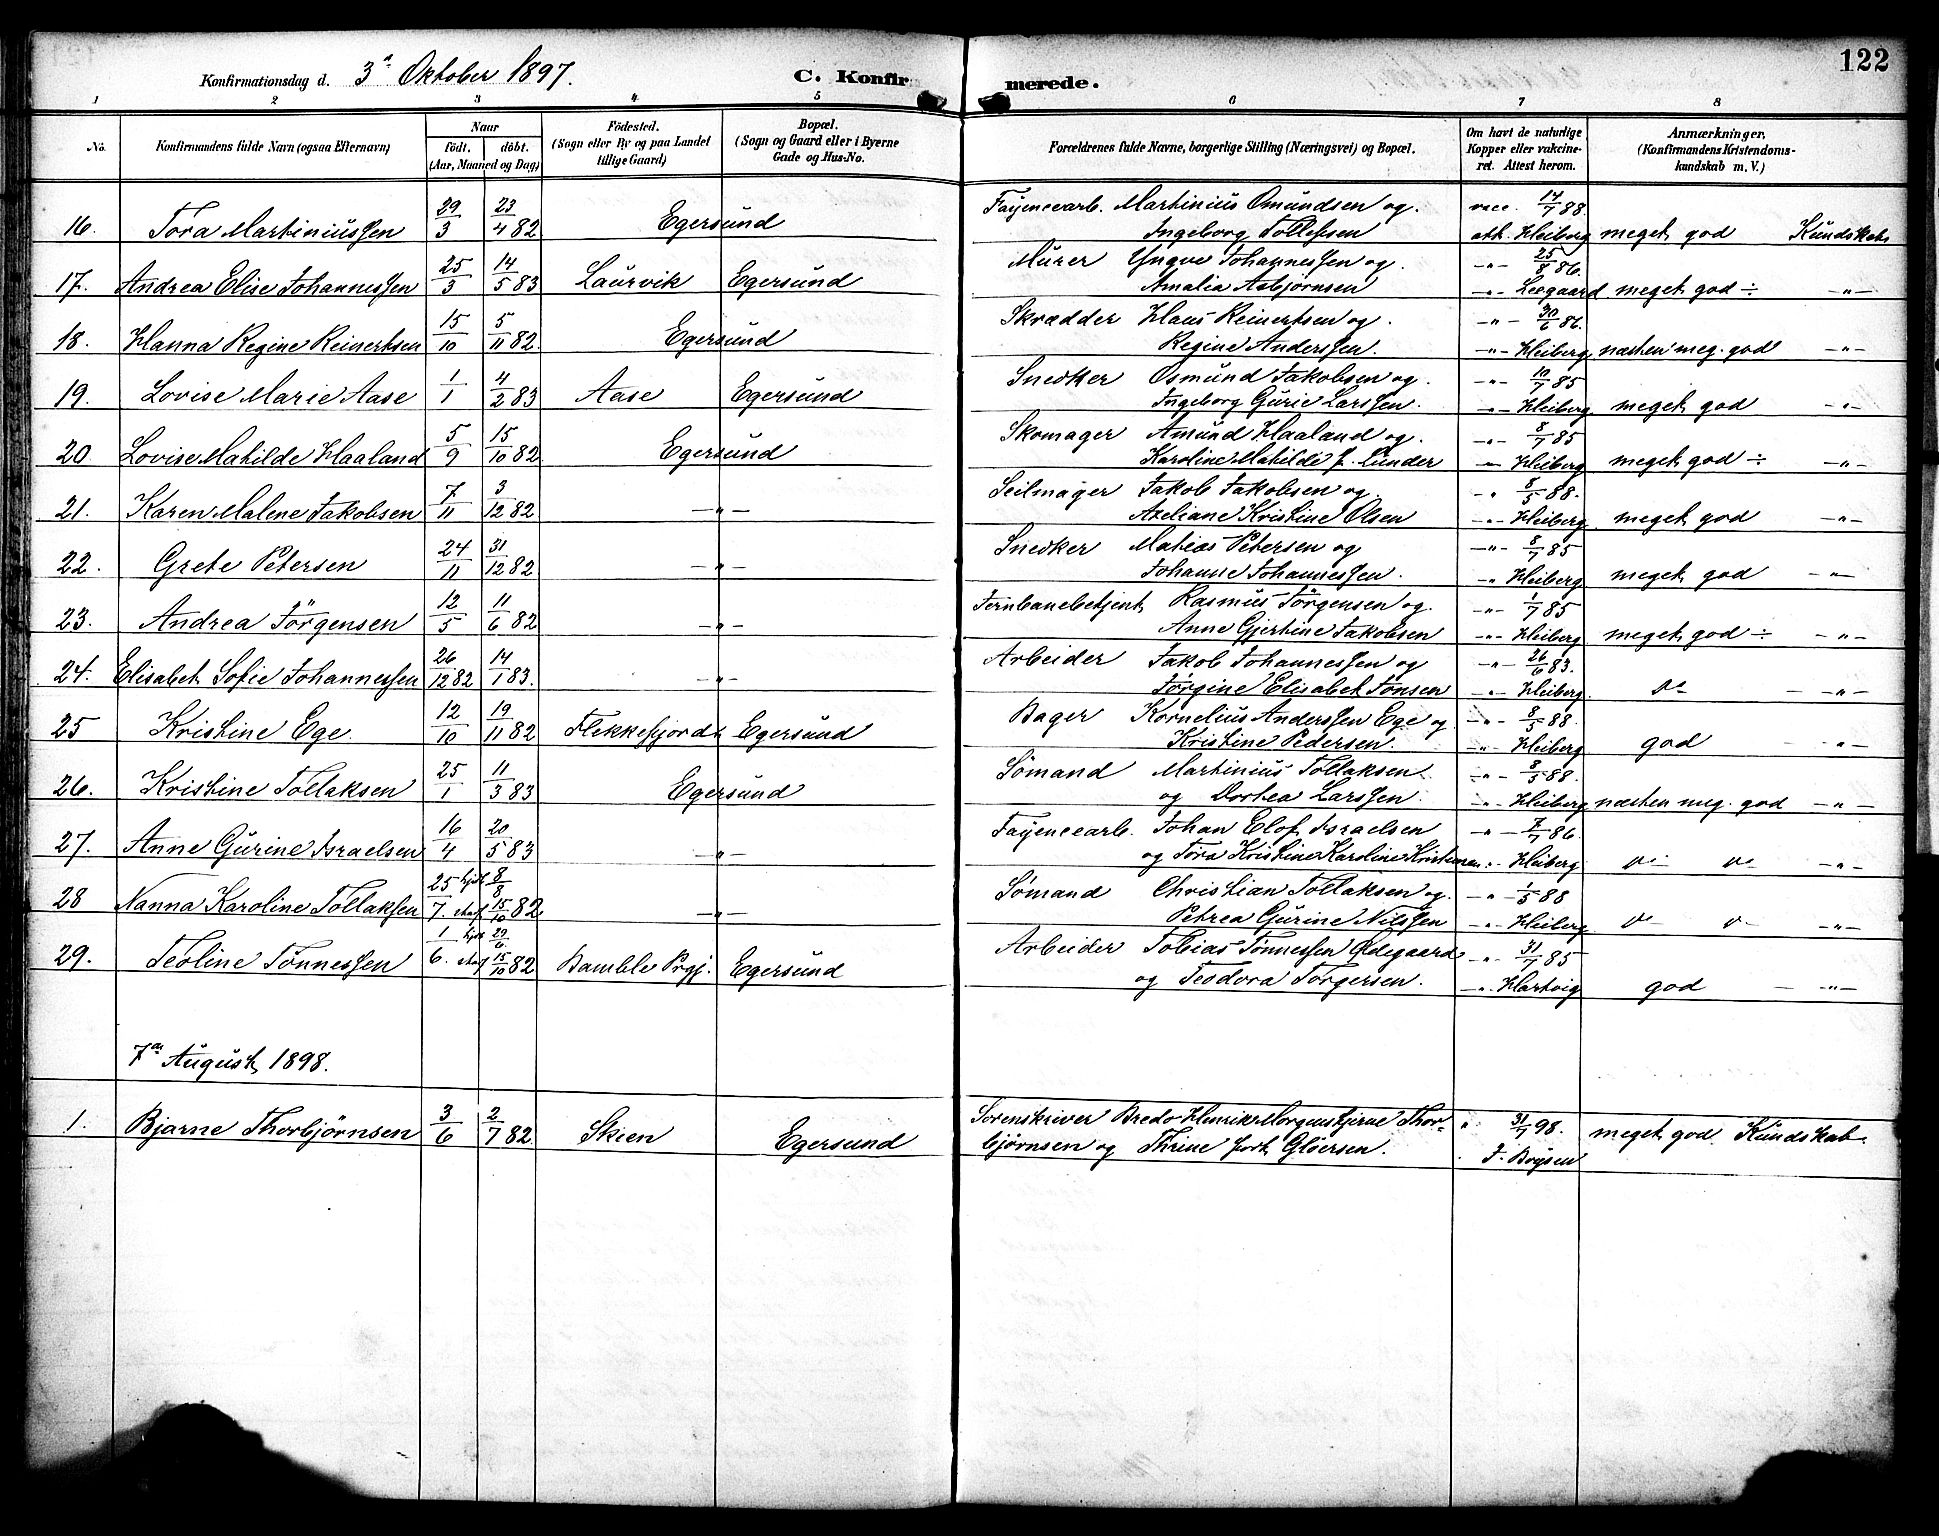 122
Konfirmationsdag d. 3die Oktober 1897. C. Konfirmerede.
1 2 3 4 5 6 7 8
No. Konfirmandens fulde Navn (ogsaa Efternavn) Naar født. døbt. (Aar, Maaned og Dag) Fødested. (Sogn eller By og paa Landet tillige Gaard) Bopæl. (Sogn og Gaard eller i Byerne Gade og Hus-No. Forældrenes fulde Navne, borgerlige Stilling (Næringsvei) og Bopæl. Om havt de naturlige Kopper eller vakcineret. Attest herom. Anmærkninger. (Konfirmandens Kristendomskundskab m. V.)
16. Tora Martiniussen 29/3 23/4 82 Egersund Fayencearb. Martinius Omundsen og vacc. 14/7 88.
Ingeborg Tollefsen att. Heiberg meget god Kundskab
17. Andrea Elise Johannessen 25/3 14/5 83 Laurvik Egersund Murer Yngve Johannessen og -"- 25/8 86.
Amalia Asbjørnsen -"- Leegaard meget god ÷ -"-
18. Hanna Regine Reinertsen 15/10 5/11 82. Egersund Skrædder Hans Reinertsen og -"- 30/6 86.
Regine Anderssen. -"- Heiberg næsten meg. god -"-
19. Lovise Marie Aase 1/1 4/2 83 Aase Egersund Snedker Osmund Jakobsen og -"- 10/7 85
Ingeborg Gurie Larssen. -"- Heiberg meget god -"-
20. Lovise Mathilde Haaland 5/9 15/10 82 Egersund Skomager Amund Haaland og -"- 8/7 85
Karoline Mathilde f. Lunder -"- Heiberg meget god ÷ -"-
21. Karen Malene Jakobsen 7/11 3/12 82 -"- Seilmager Jakob Jakobsen og -"- 8/5 88.
Axeliane Kristine Olsen -"- Heiberg meget god -"-
22. Grete Petersen 24/11 31/12 82 -"- Snedker Matias Petersen og -"- 8/7 85
Johanne Johannessen. -"- Heiberg meget god -"-
23. Andrea Jörgensen 12/5 11/6 82 -"- Jernbanebetjent Rasmus Jörgensen og -"- 1/7 85
Anne Gjertine Jakobsen -"- Heiberg meget god ÷ -"-
24. Elisabet Sofie Johannessen 26/12 82 14/1 83. -"- Arbeider Jakob Johannessen og -"- 26/6 83.
Jørgine Elisabet Jonsen -"- Heiberg. do -"-
25 Kristine Ege. 12/10 19/11 82 Flekkefjord Egersund Bager Kornelius Anderssen Ege og -"- 8/5 88.
Kristine Pedersen. -"- Heiberg god -"-
26. Kristine Tollaksen 25/1 11/3 83 Egersund Sømand Martinius Tollaksen -"- 8/5 88.
og Dortea Larssen. -"- Heiberg næsten meg. god -"-
27. Anne Gurine Israelsen 16/4 20/5 83 -"- Fayencearb. Johan Elof Israelsen -"- 7/7 86.
og Tora Kristine Karoline Kristensen -"- Heiberg do do -"-
28 Nanna Karoline Tollaksen 25/7. hjdt. 8/8 staf 15/10 82 -"- Sømand Christian Tollaksen og -"- 1/5 88
Petrea Gurine Nilssen -"- Heiberg do do -"-
29. Teoline Tønnessen 1/6. hjdt 29/6 staf 15/10 82 Bamble Prgj. Egersund Arbeider Tobias Tønnessen Ødegaard -"- 31/7 85
og Teodora Torgersen. -"- Hartvig god -"-
7de August 1898.
1. Bjarne Thorbjørnsen 3/6 2/7 82. Skien Egersund Sorenskriver Bredo Henrik Morgenstjerne Thor- " 31/7 98. meget god Kundskab
bjørnsen og Thrine født Gløersen. " J. Boysen